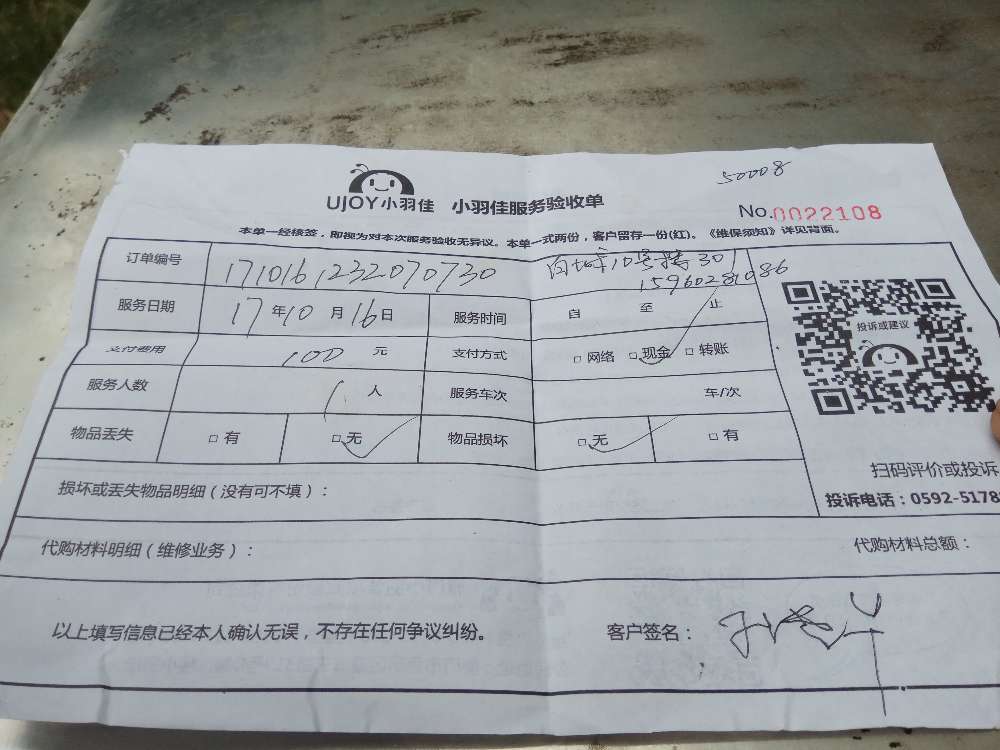 50008
UJOY小羽佳 小羽佳服务验收单
No.0022108
本单一经核签，即视为对本次服务验收无异议。本单一式两份，客户留存一份(红)。《维保须知》详见背面。
订单编号 1710161232070730 10号楼301
15960281086
服务日期 17年10月16日 服务时间 自 至 止
投诉或建议
支付费用 100元 支付方式 □网络 □现金 □转账
服务人数 1人 服务车次 车/次
物品丢失 □有 □无 物品损坏 □无 □有
扫码评价或投诉
损坏或丢失物品明细（没有可不填）：
投诉电话：0592-5178
代购材料明细（维修业务）： 代购材料总额：
以上填写信息已经本人确认无误，不存在任何争议纠纷。 客户签名：